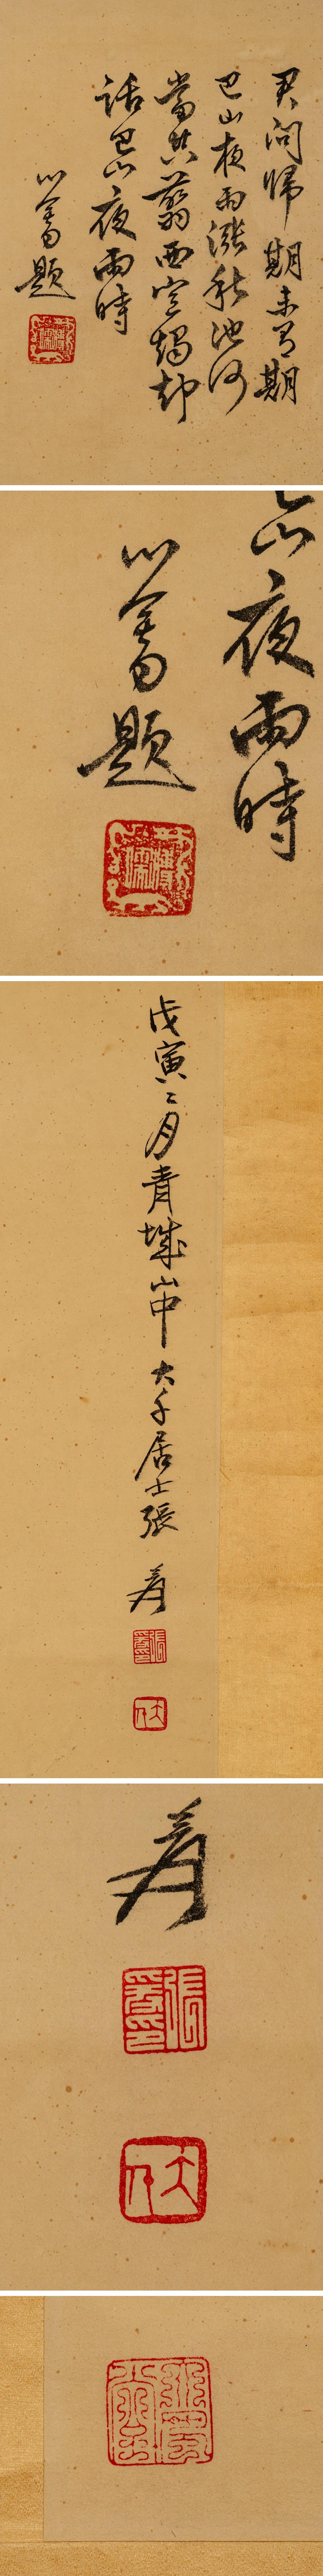 君問歸期未有期
巴山夜雨漲秋池何
當共翦西窗燭却
話巴山夜雨時
心畬題
山夜雨時
心畬題
戊寅二月青城山中大千居士張爰
張爰印
大千
爰
張爰印
大千